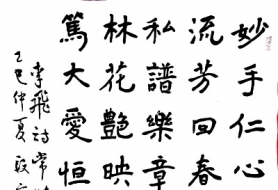 妙手仁心
流芳回春
私譜樂章
林花艷映
篤大愛恒
李飛詩常
乙巳仲夏敬